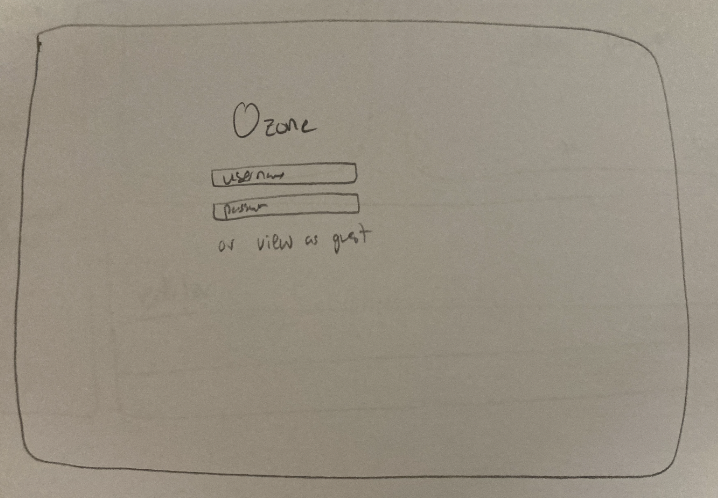 Ozone
username
password
or view as guest